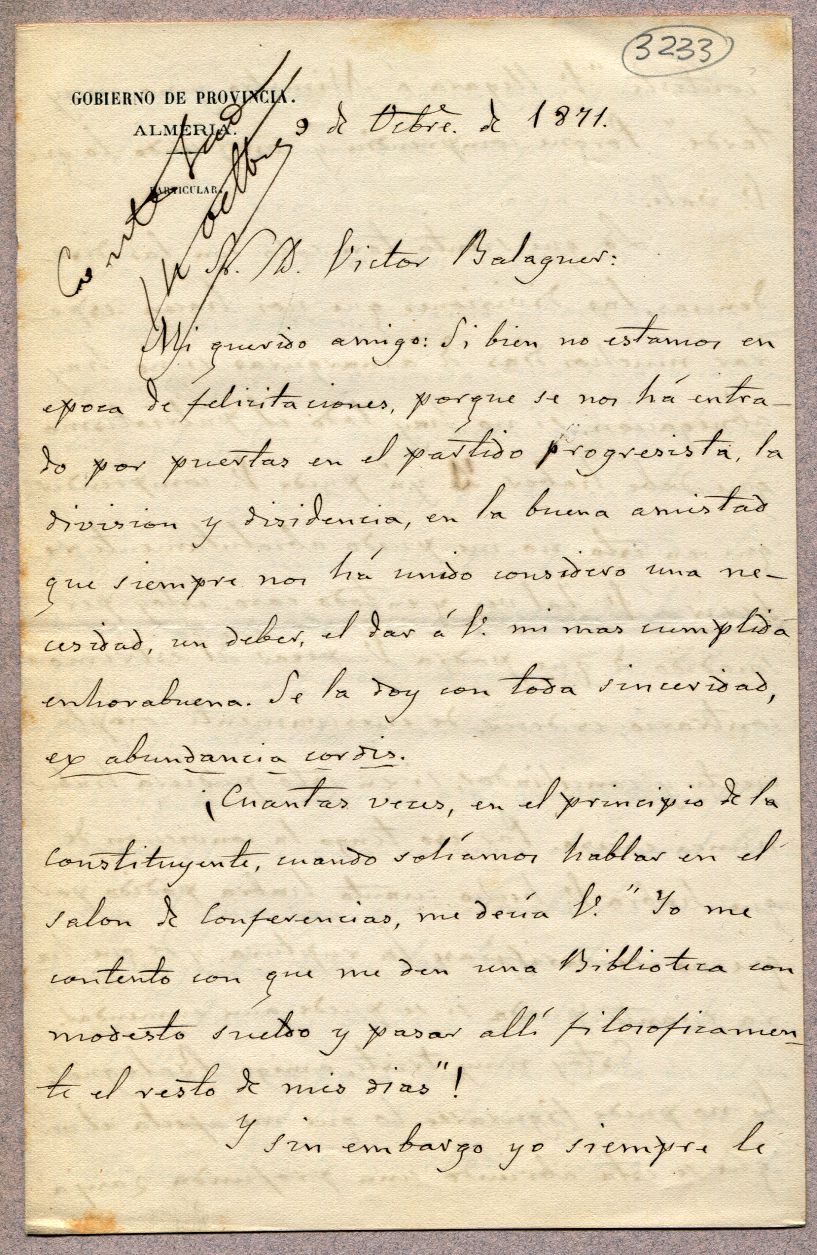 3233
GOBIERNO DE PROVINCIA.
ALMERIA.
PARTICULAR.
Contestad
14 octbre
9 de Octbre. de 1871.
Sr. D. Victor Balaguer:
Mi querido amigo: Si bien no estamos en
epoca de felicitaciones, porque se nos há entra-
do por puertas en el partido progresista, la
division y disidencia, en la buena amistad
que siempre nos há unido considero una ne-
cesidad, un deber, el dar á V. mi mas cumplida
enhorabuena. Se la doy con toda sinceridad,
ex abundancia cordis.
¡Cuantas veces, en el principio de la
Constituyente, cuando solíamos hablar en el
salon de Conferencias, me decía V. "Yo me
contento con que me den una Biblioteca con
modesto sueldo y pasar allí filosoficamen-
te el resto de mis dias"!
Y sin embargo yo siempre le